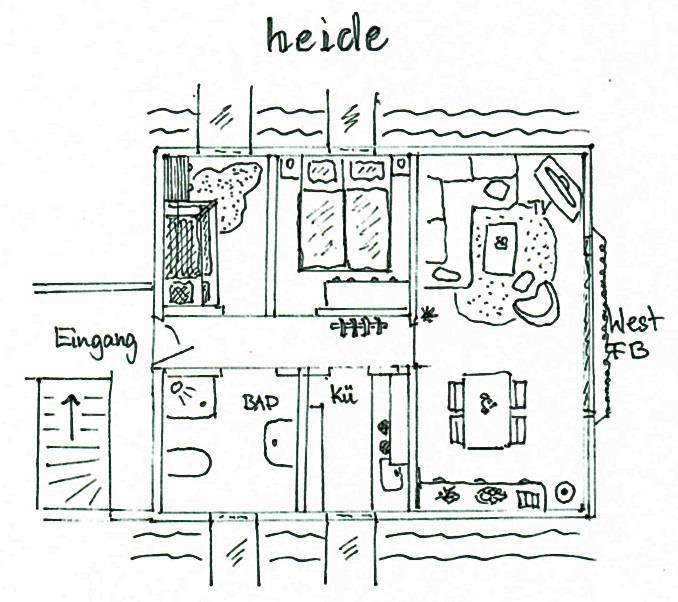 heide
TV
Eingang
West
FB
BAD
Kü